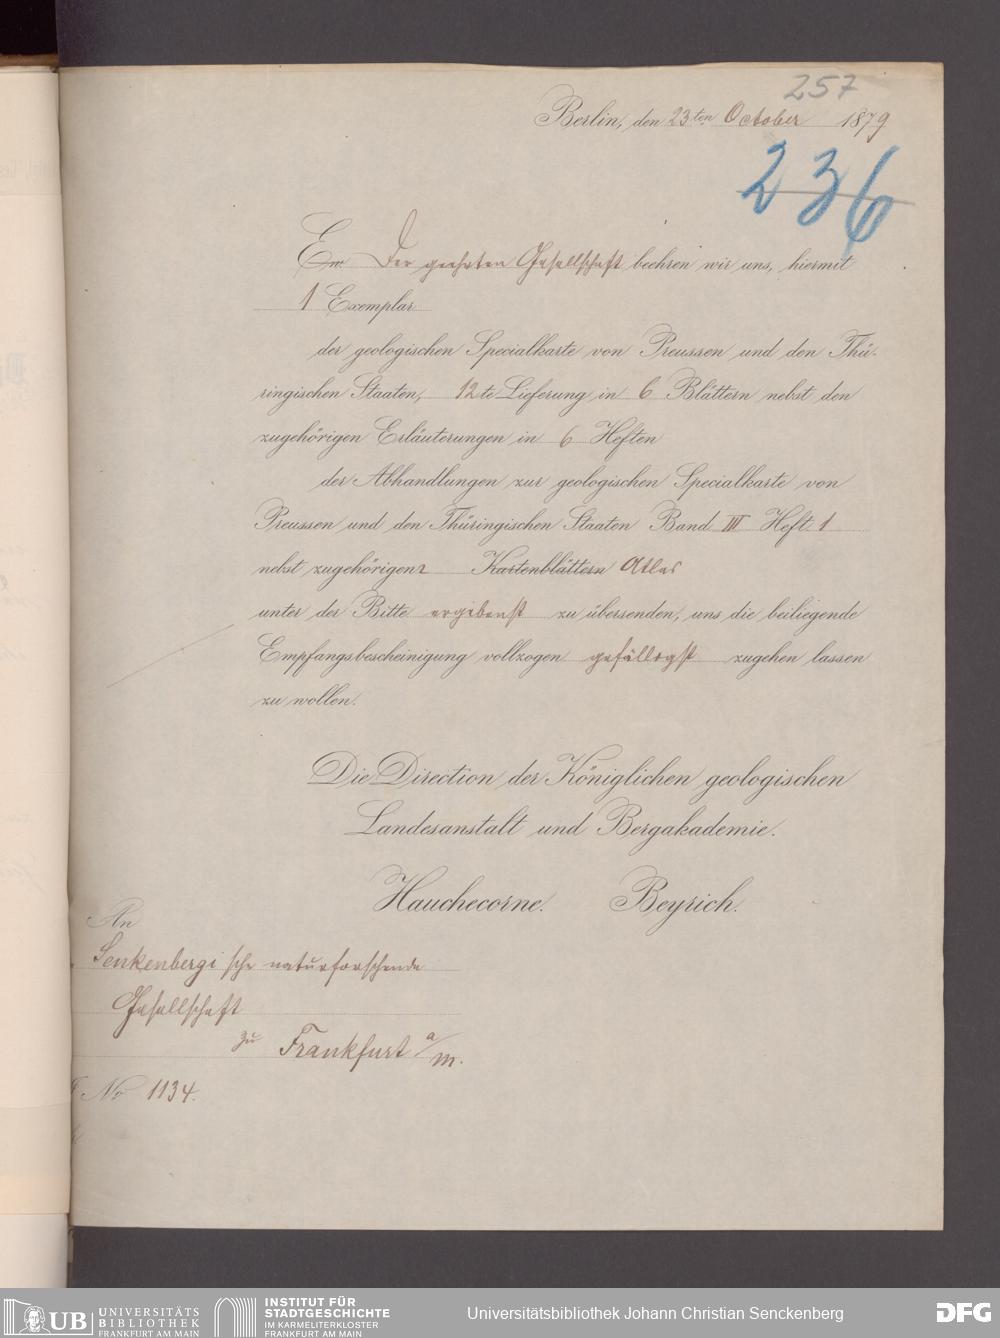 257
Berlin, den 23ten October 1879
236
Ew. Der geehrten Gesellschaft beehren wir uns, hiermit
1 Exemplar
der geologischen Specialkarte von Preussen und den Thü-
ringischen Staaten, 12te Lieferung in 6 Blättern nebst den
zugehörigen Erläuterungen in 6 Heften
der Abhandlungen zur geologischen Specialkarte von
Preussen und den Thüringischen Staaten Band III Heft 1
nebst zugehörigen Kartenblättern Atlas
unter der Bitte ergebenst zu übersenden, uns die beiliegende
Empfangsbescheinigung vollzogen gefälligst zugehen lassen
zu wollen.
Die Direction der Königlichen geologischen
Landesanstalt und Bergakademie.
Hauchecorne. Beyrich.
An
Senkenbergi sche naturforschende
Gesellschaft
zu Frankfurt a/M.
No 1134.
UB UNIVERSITÄTS
BIBLIOTHEK
FRANKFURT AM MAIN
INSTITUT FÜR
STADTGESCHICHTE
IM KARMELITERKLOSTER
FRANKFURT AM MAIN
Universitätsbibliothek Johann Christian Senckenberg
DFG